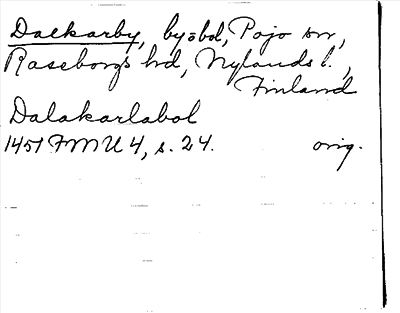 Dalkarby, by o bol, Pojo sn,
Raseborgs hd, Nylands l.,
Finland
Dalakarlabol
1451 FMU 4, s. 24. orig.